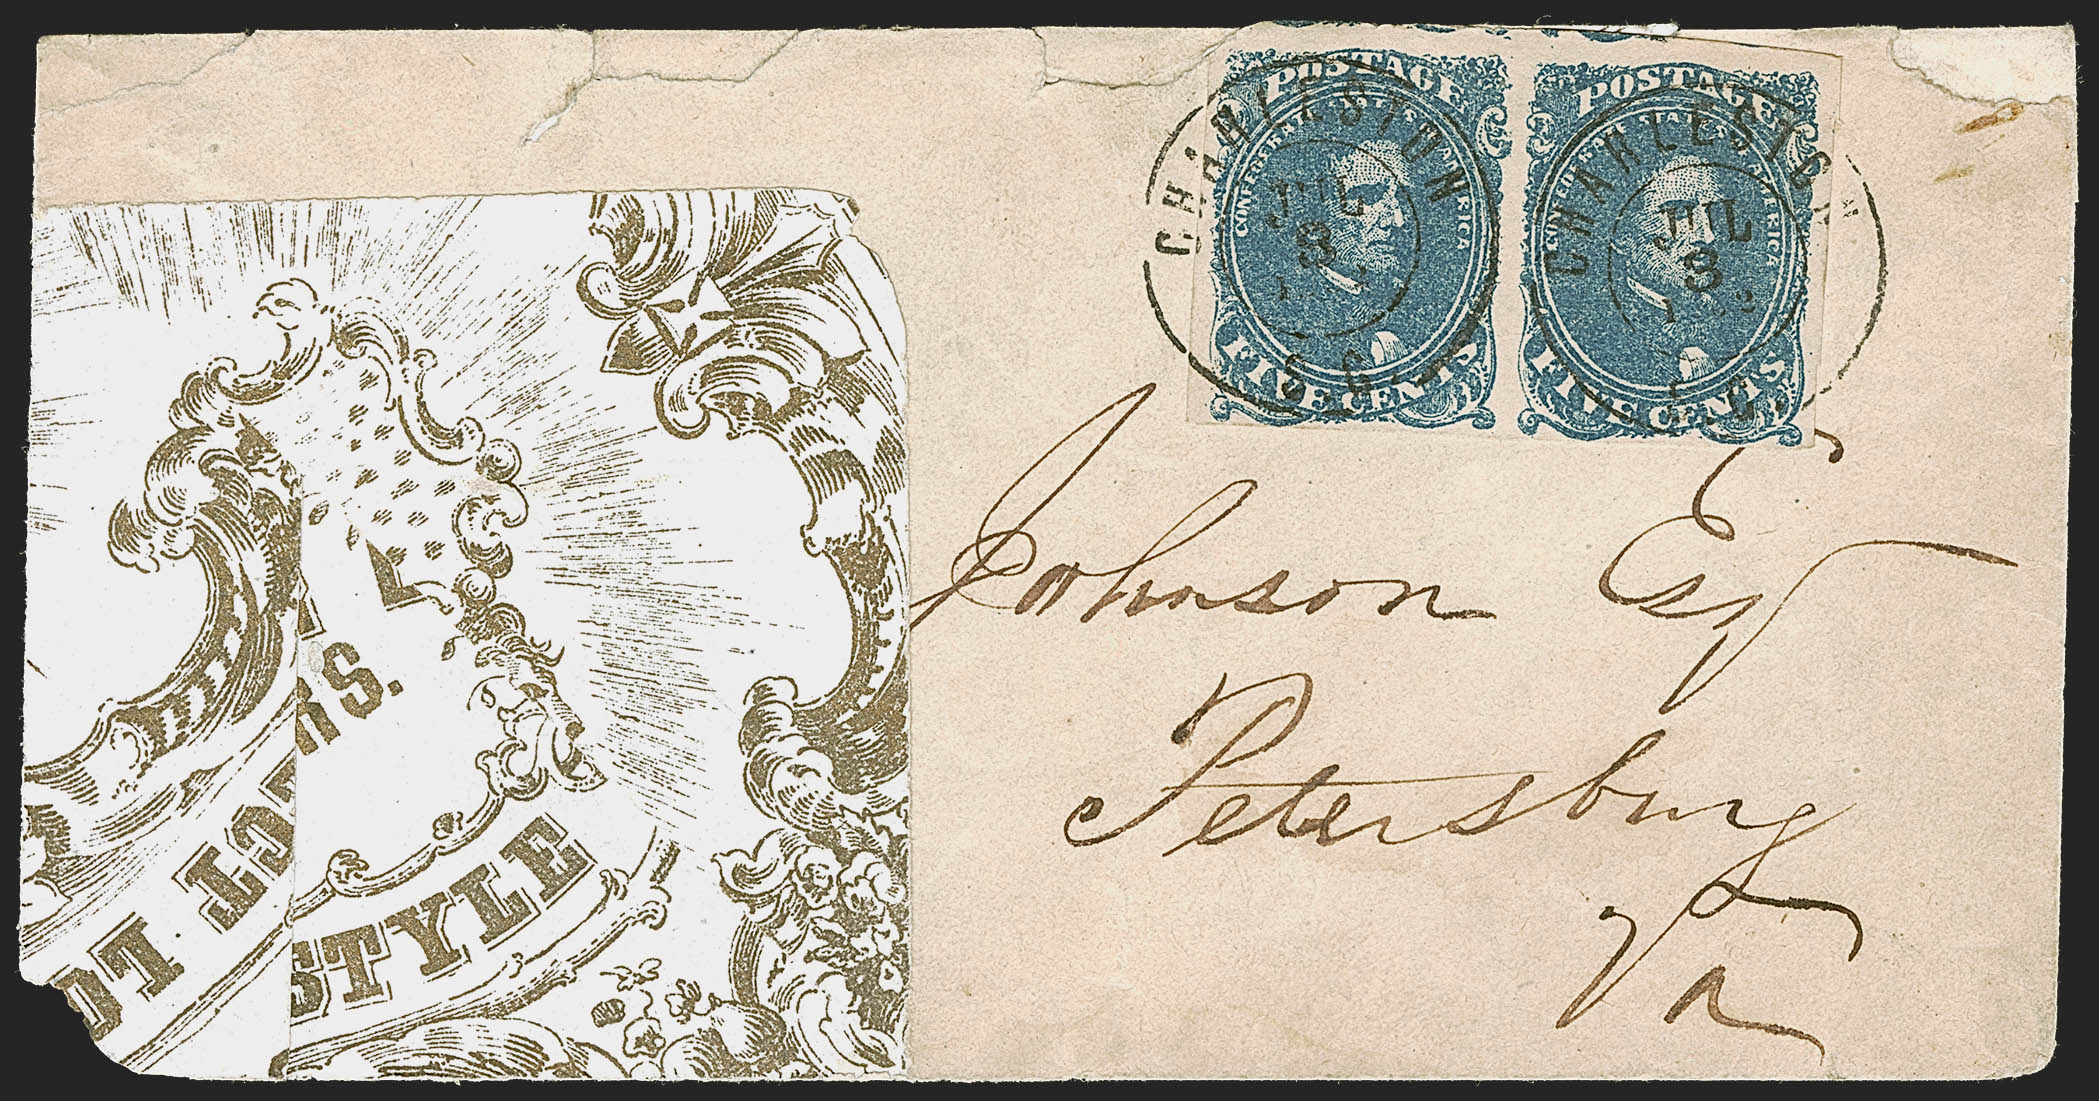 POSTAGE
CONFEDERATE STATES OF AMERICA
FIVE CENTS
POSTAGE
CONFEDERATE STATES OF AMERICA
FIVE CENTS
CHARLESTON
JUL
3
S.C.
CHARLESTON
JUL
3
S.C.
Johnson Esq
Petersburg
Va
STYLE